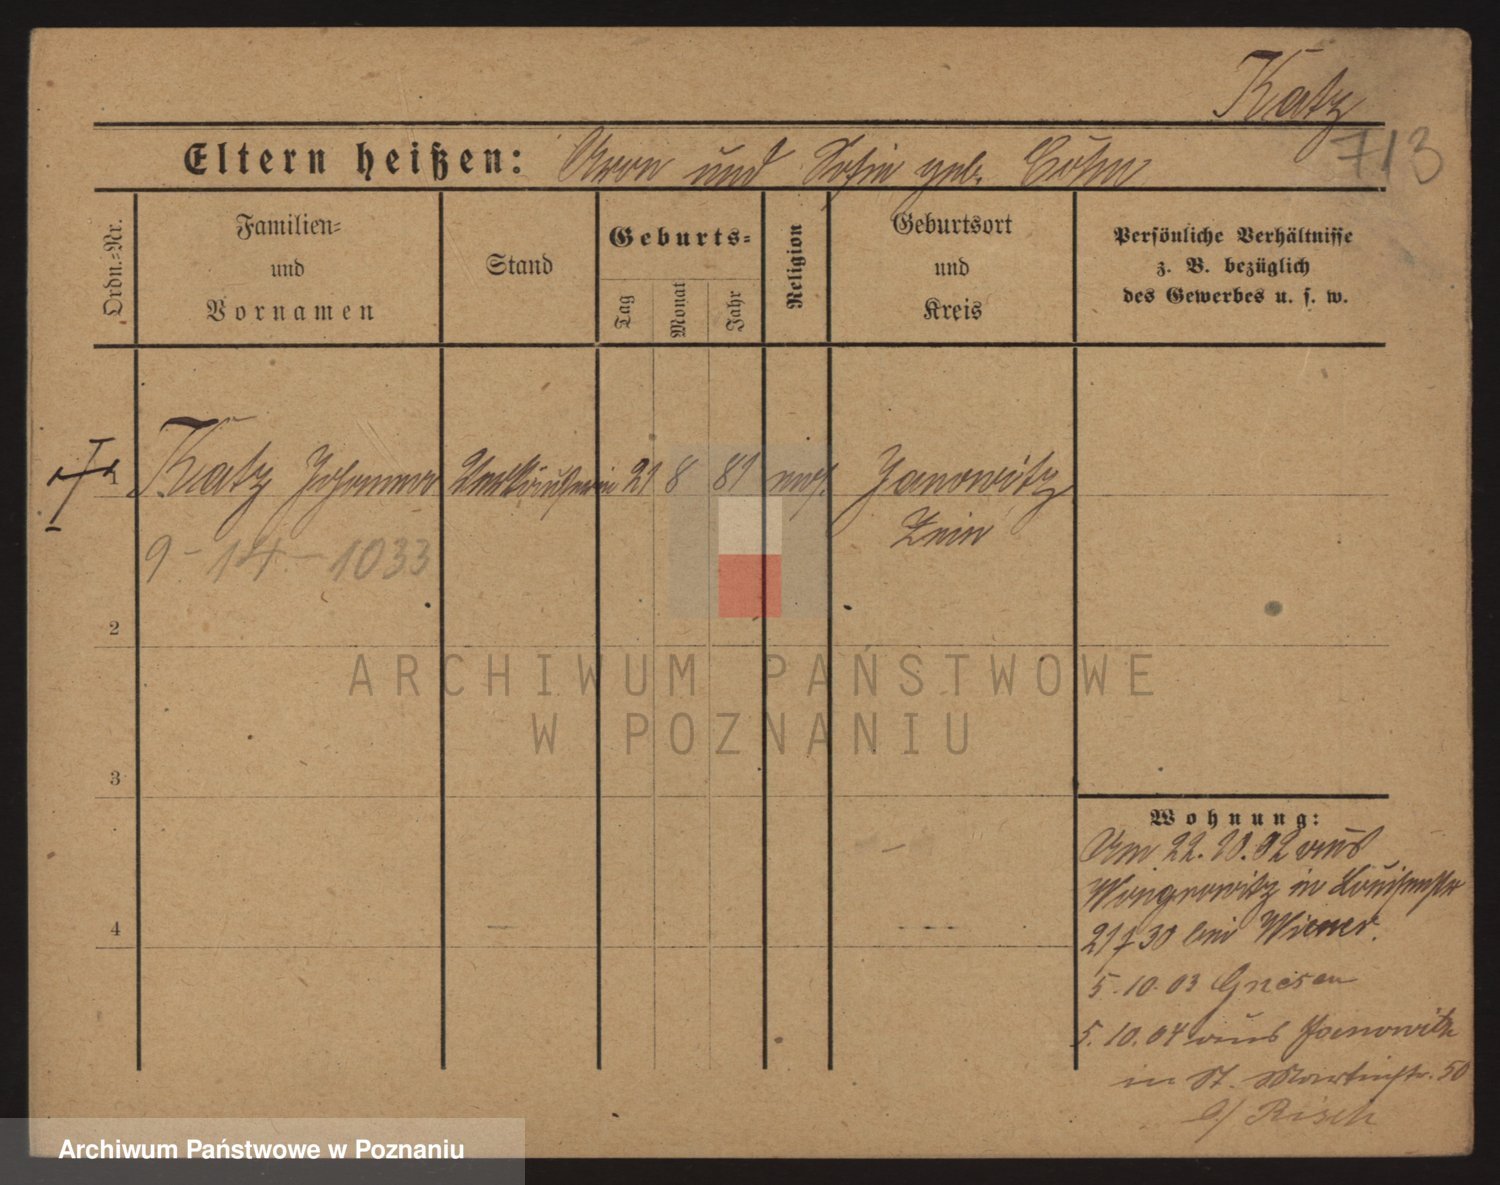 Katz
713
Eltern heißen: Aron und Sofie geb. Cohn
Ordn.-Nr.
Familien-
und
Vornamen
Stand
Geburts-
Tag
Monat
Jahr
Religion
Geburtsort
und
Kreis
Persönliche Verhältnisse
z. B. bezüglich
des Gewerbes u. s. w.
1 Katz Johanna Verkäuferin 21 8 81 mos. Janowitz
Znin
9-14-1033
2
3
4
ARCHIWUM PAŃSTWOWE
W POZNANIU
Wohnung:
Am 22.10.02 aus
Wongrowitz in Louisenstr
21 f 30 bei Wiener.
5.10.03 Gnesen
5.10.04 aus Janowitz
in St. Martinstr. 50
b/ Risch
Archiwum Państwowe w Poznaniu